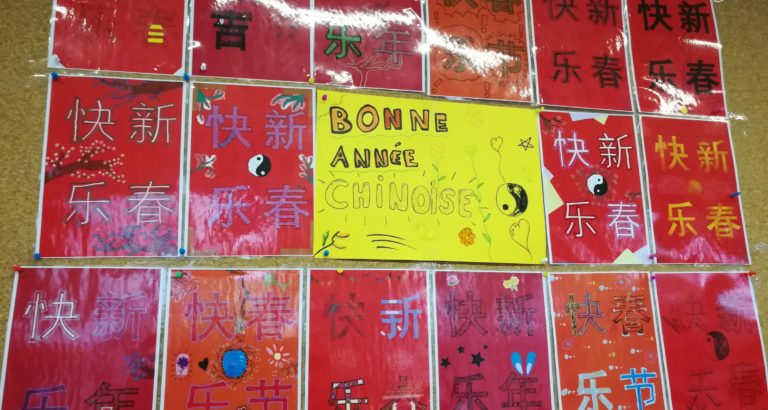 吉
乐年
快春
乐节
快新
乐春
快新
乐春
快新
乐春
快新
乐春
BONNE
ANNÉE
CHINOISE
快新
乐春
快新
乐春
快新
乐年
快春
乐节
快新
乐
快新
乐年
快春
乐节
快新
乐春